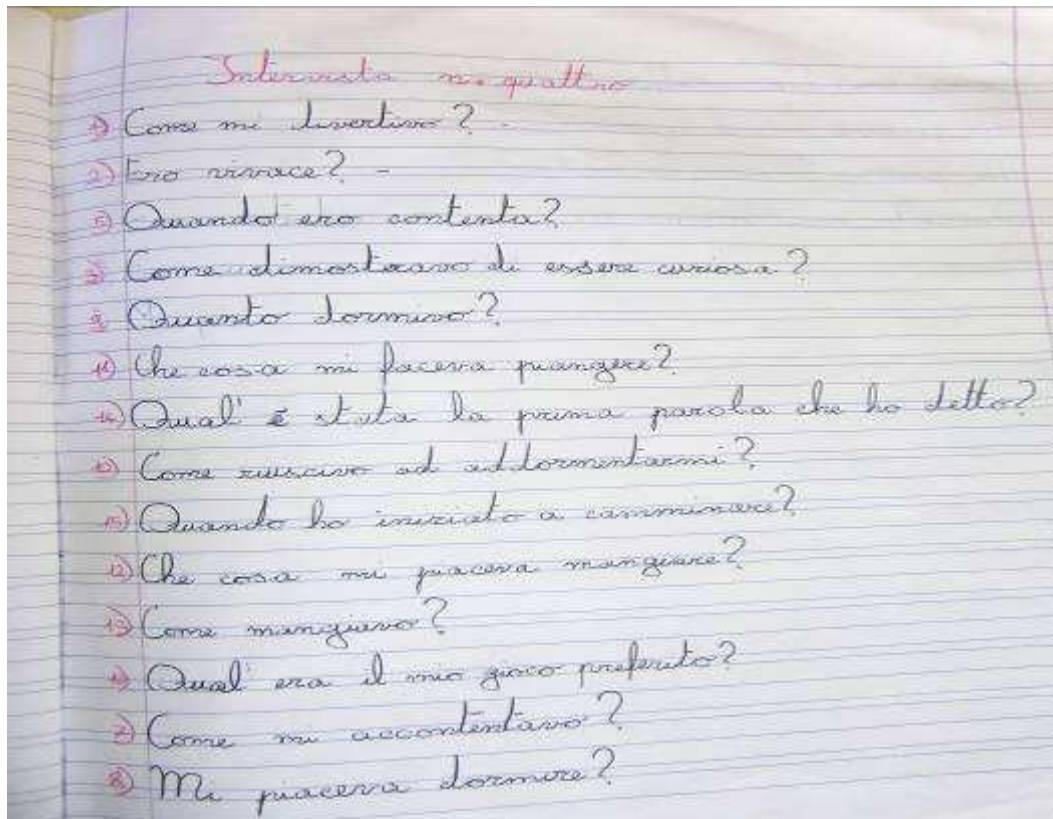 Intervista n. quattro
1) Come mi divertivo? -
2) Ero vivace? -
5) Quando ero contenta?
Come dimostravo di essere curiosa?
9 Quanto dormivo?
11) Che cosa mi faceva piangere?
14) Qual' è stata la prima parola che ho detto?
10) Come riuscivo ad addormentarmi?
15) Quando ho iniziato a camminare?
12) Che cosa mi piaceva mangiare?
13) Come mangiavo?
Qual' era il mio gioco preferito?
7) Come mi accontentavo?
8) Mi piaceva dormire?